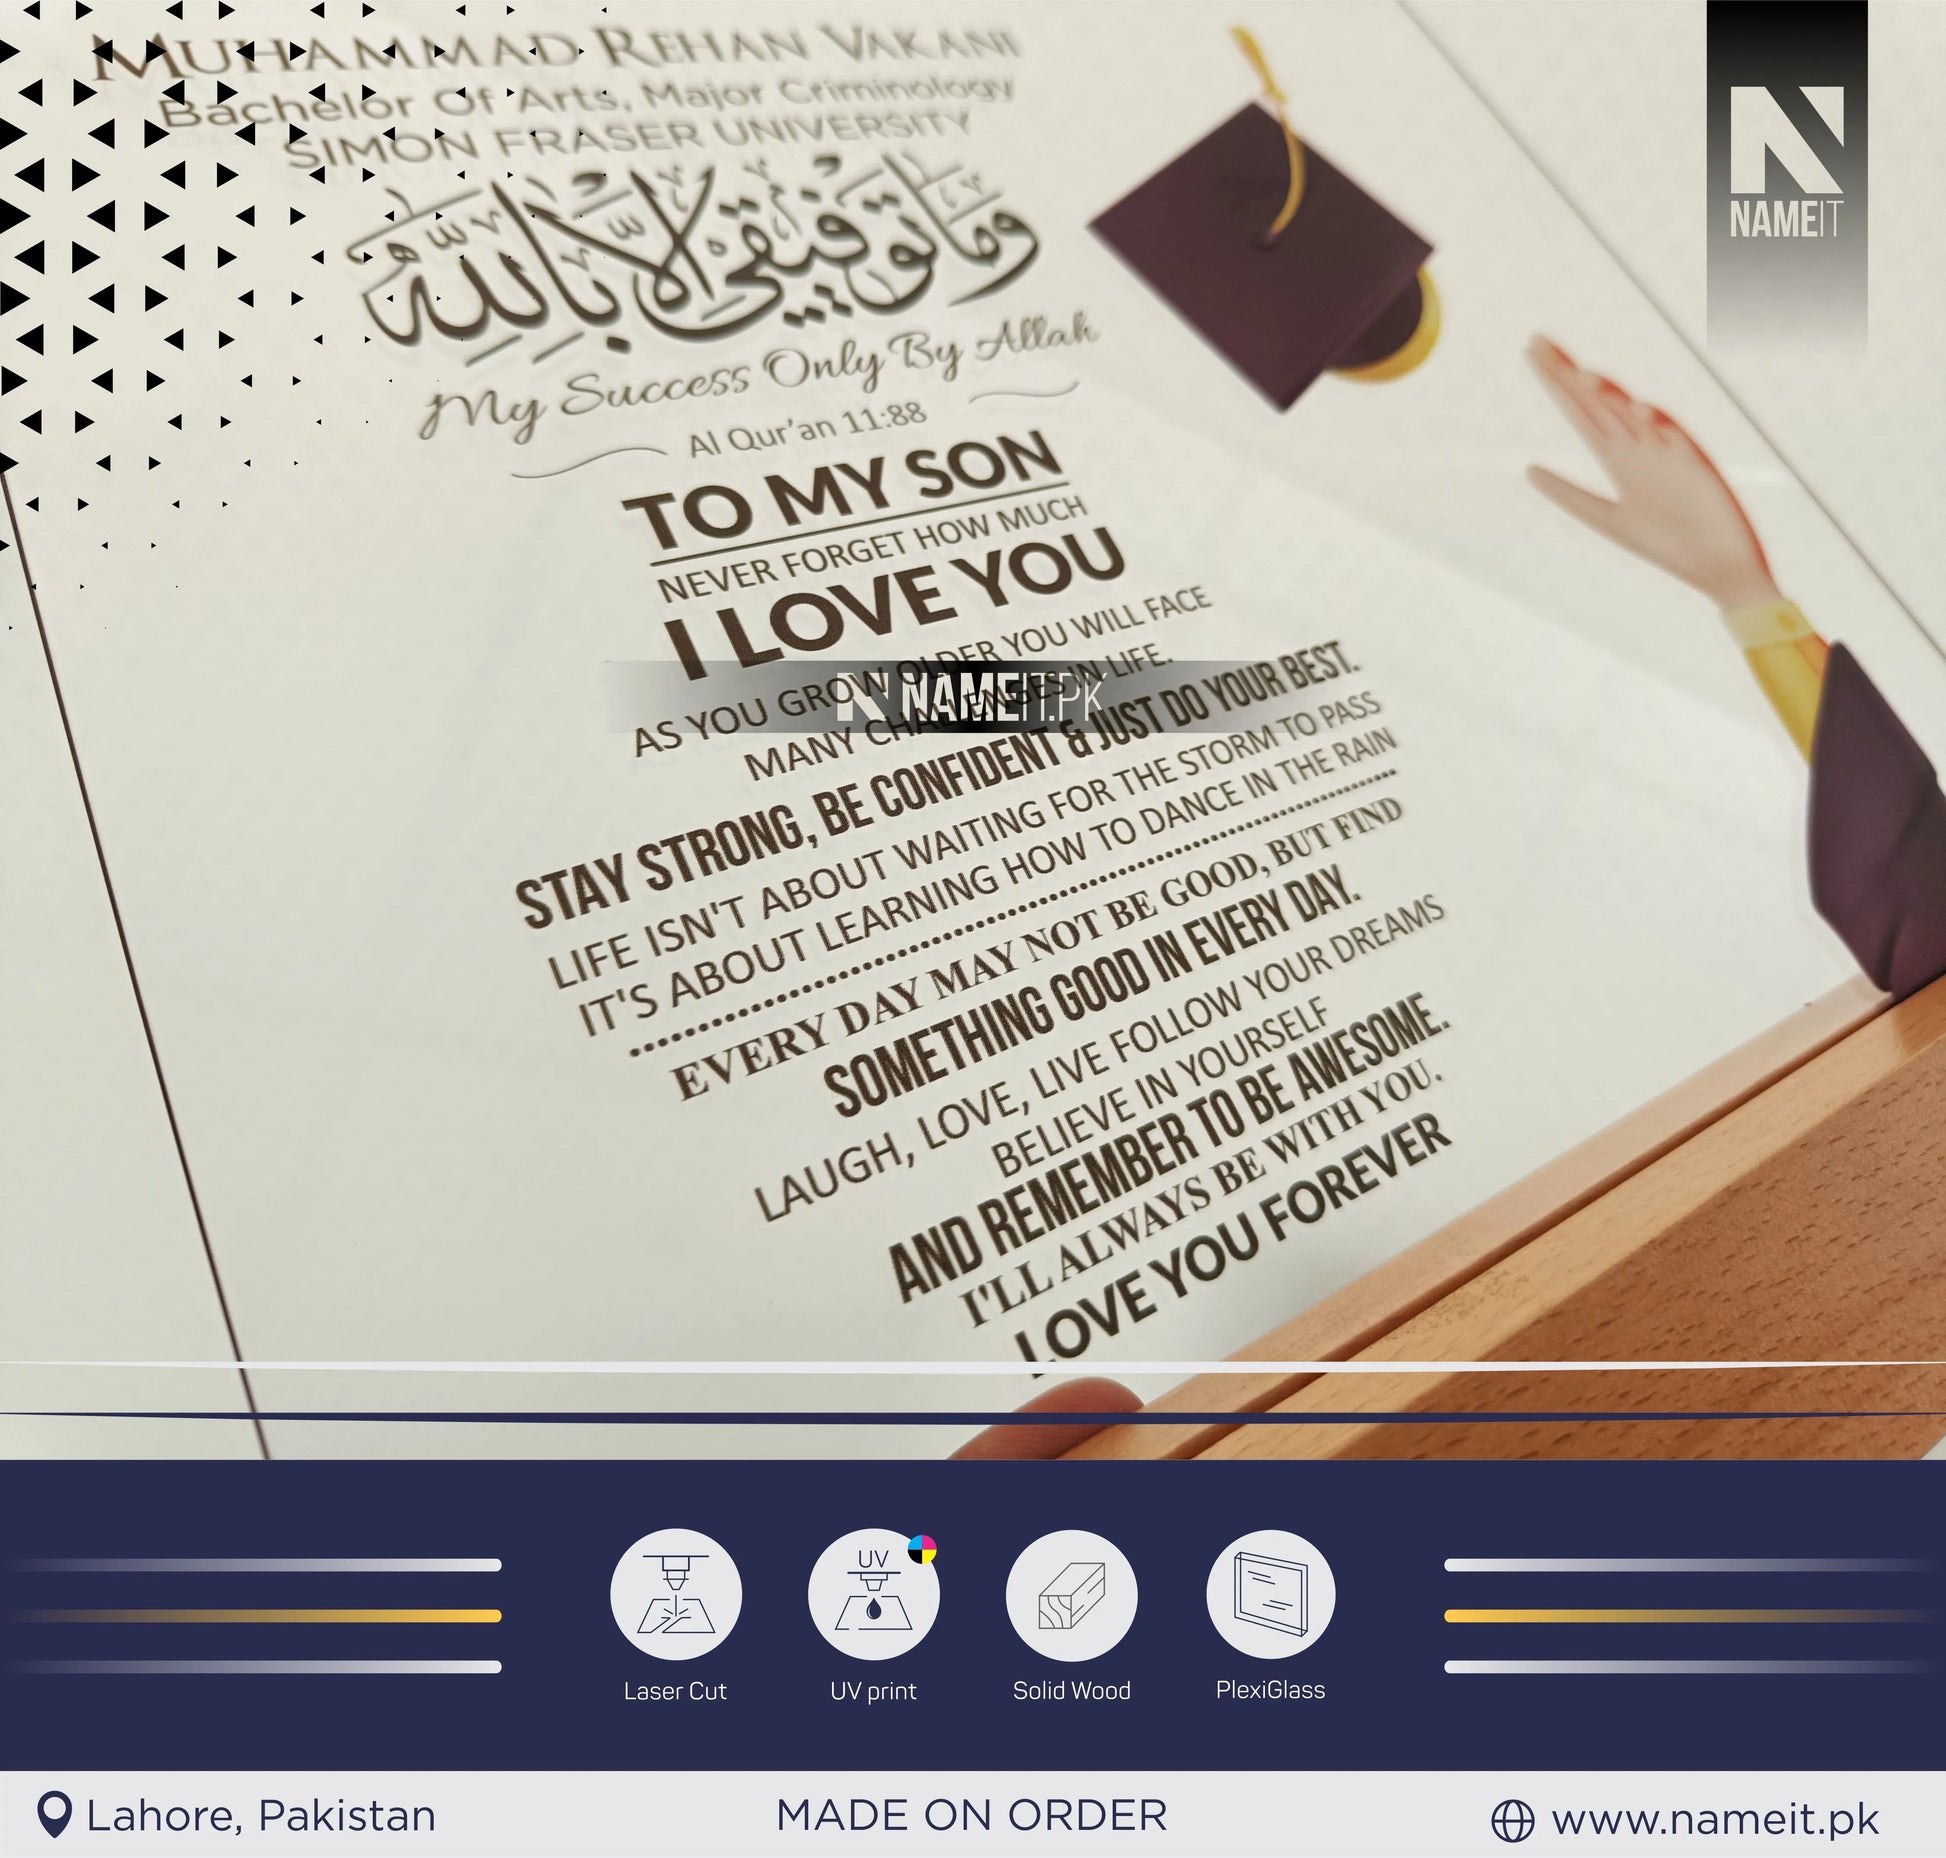 MUHAMMAD REHAN VAKANI
Bachelor Of Arts, Major Criminology
SIMON FRASER UNIVERSITY
وما توفيقي إلا بالله
My Success Only By Allah
Al Qur'an 11:88
TO MY SON
NEVER FORGET HOW MUCH
I LOVE YOU
AS YOU GROW OLDER YOU WILL FACE
MANY CHALLENGES IN LIFE.
STAY STRONG, BE CONFIDENT & JUST DO YOUR BEST.
LIFE ISN'T ABOUT WAITING FOR THE STORM TO PASS
IT'S ABOUT LEARNING HOW TO DANCE IN THE RAIN
EVERY DAY MAY NOT BE GOOD, BUT FIND
SOMETHING GOOD IN EVERY DAY.
LAUGH, LOVE, LIVE FOLLOW YOUR DREAMS
BELIEVE IN YOURSELF
AND REMEMBER TO BE AWESOME.
I'LL ALWAYS BE WITH YOU.
LOVE YOU FOREVER
N
NAMEIT
N NAMEIT.PK
UV
Laser Cut
UV print
Solid Wood
PlexiGlass
Lahore, Pakistan
MADE ON ORDER
www.nameit.pk